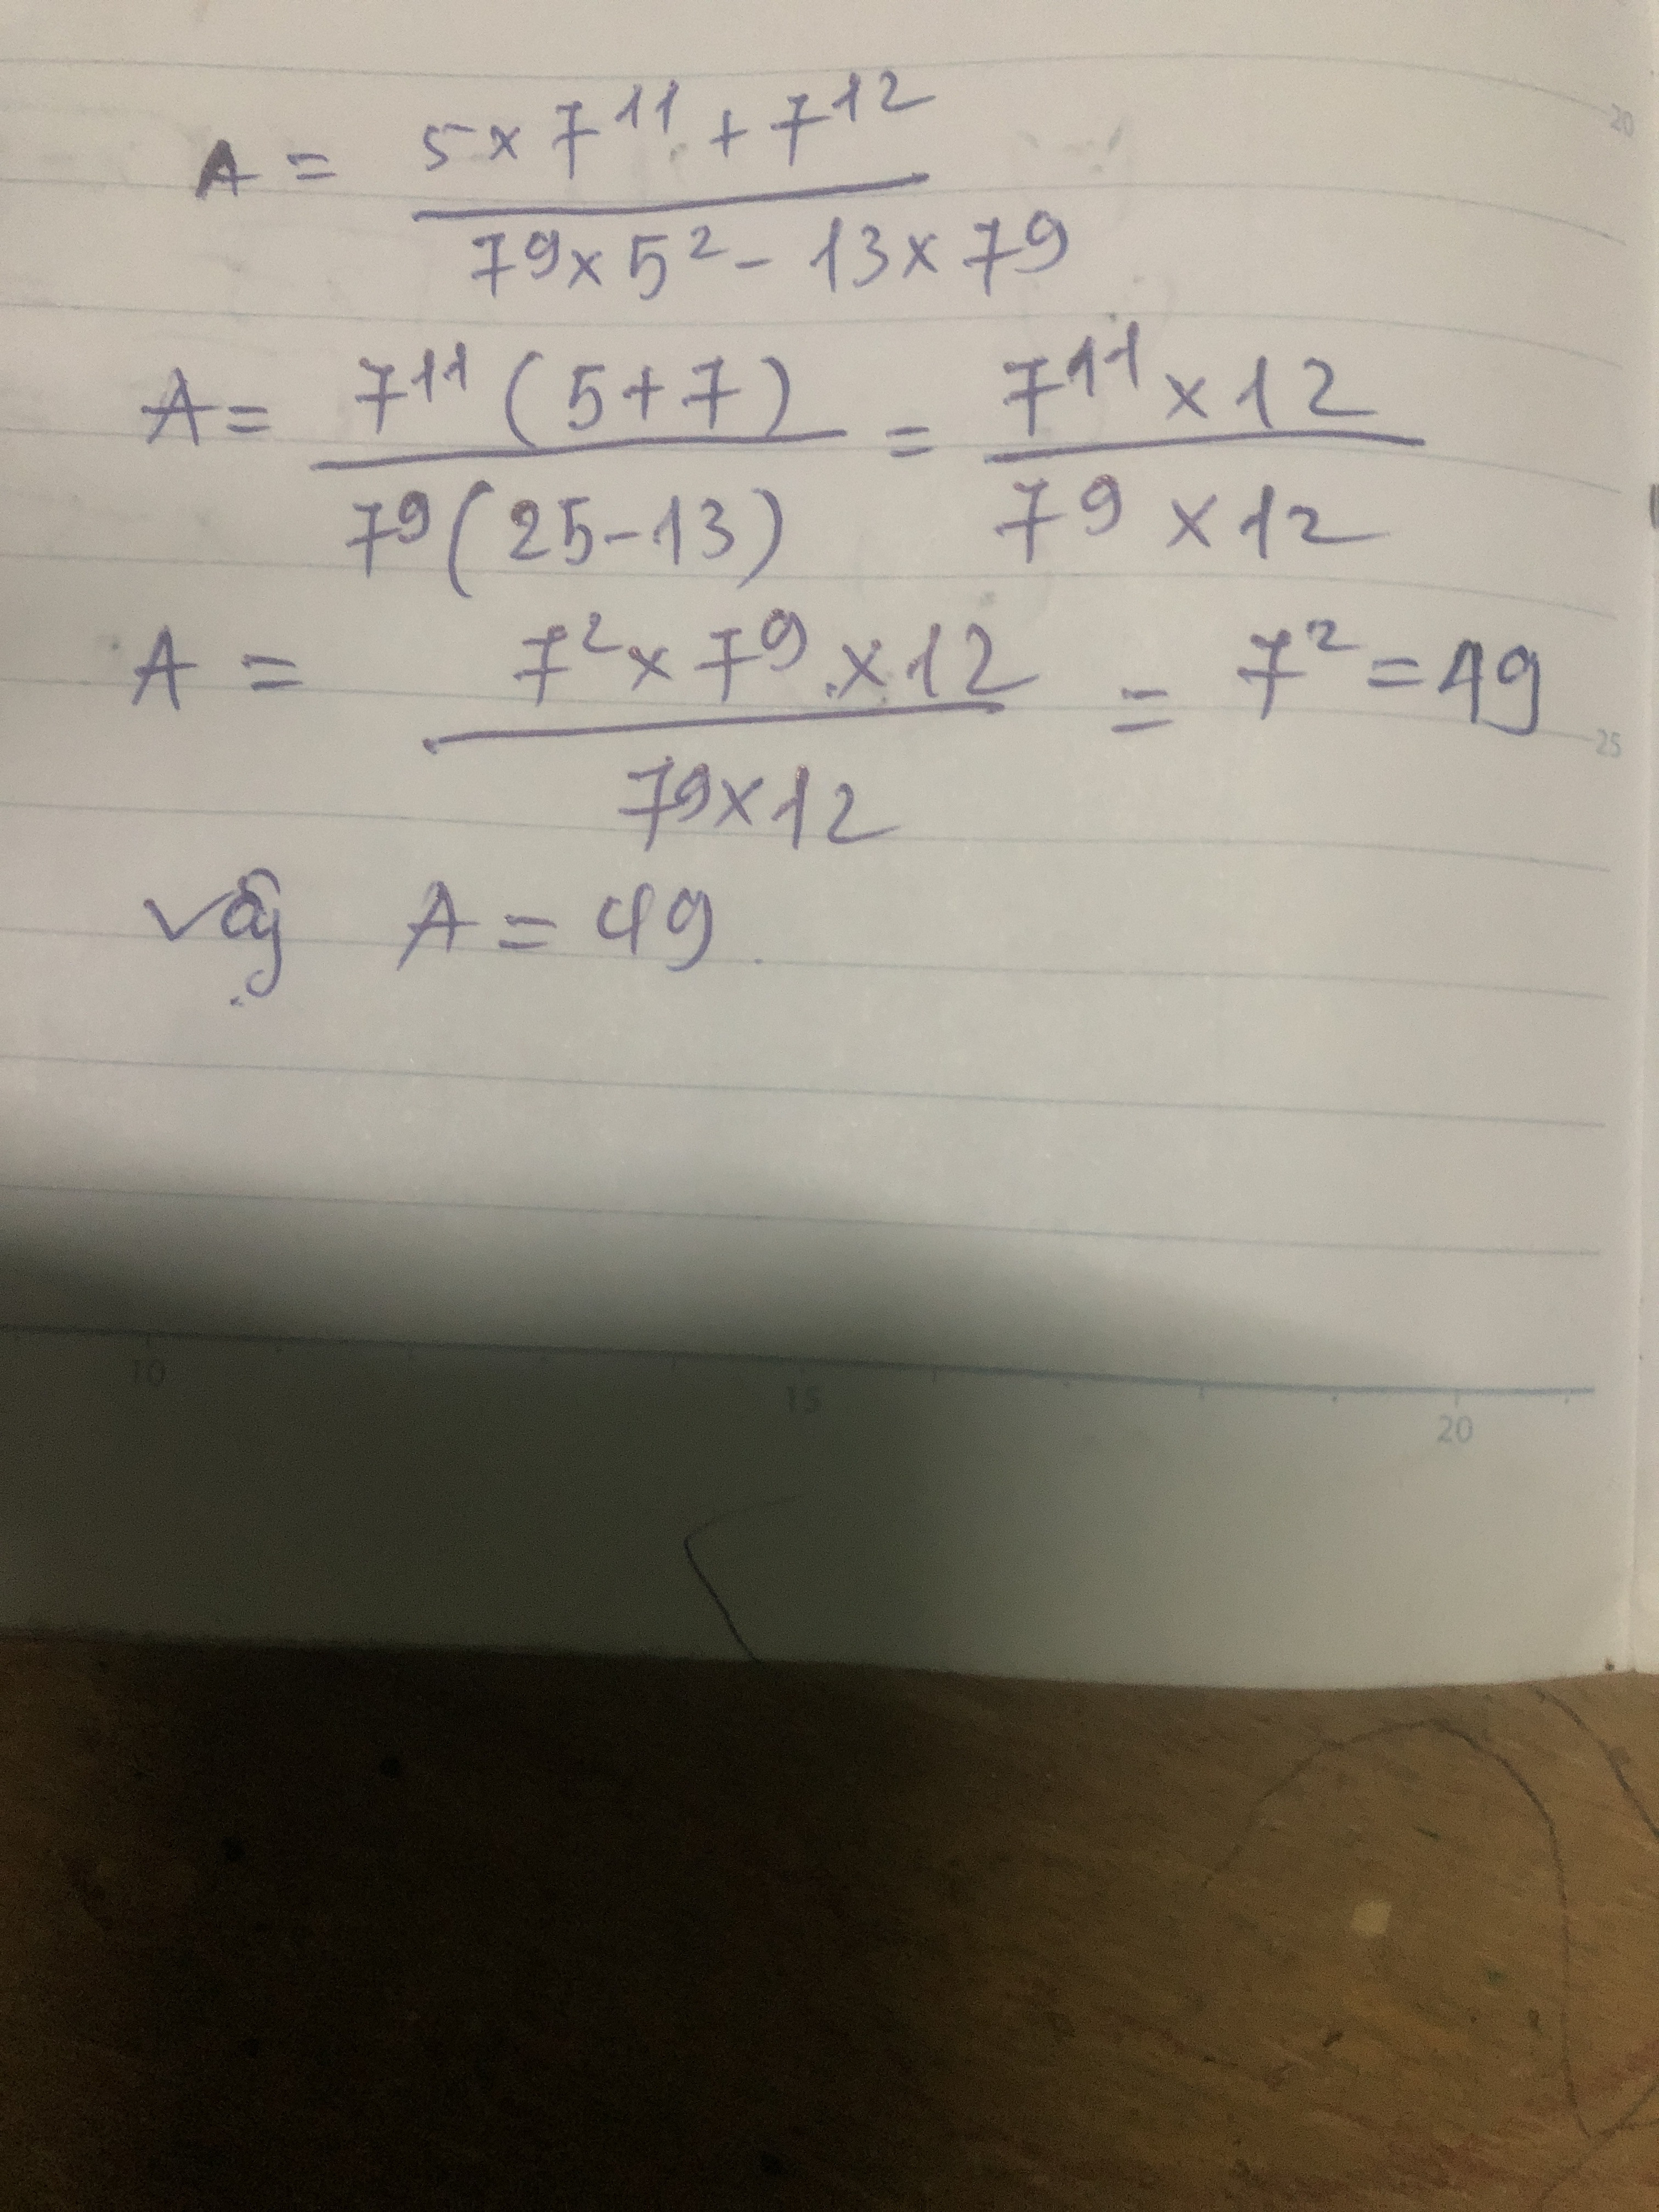 20
A = (5 × 7¹¹ + 7¹²) / (7⁹ × 5² - 13 × 7⁹)
A = 7¹¹ (5 + 7) / 7⁹ (25 - 13) = 7¹¹ × 12 / 7⁹ × 12
A = 7² × 7⁹ × 12 / 7⁹ × 12 = 7² = 49
25
Vậy A = 49.
10 15 20